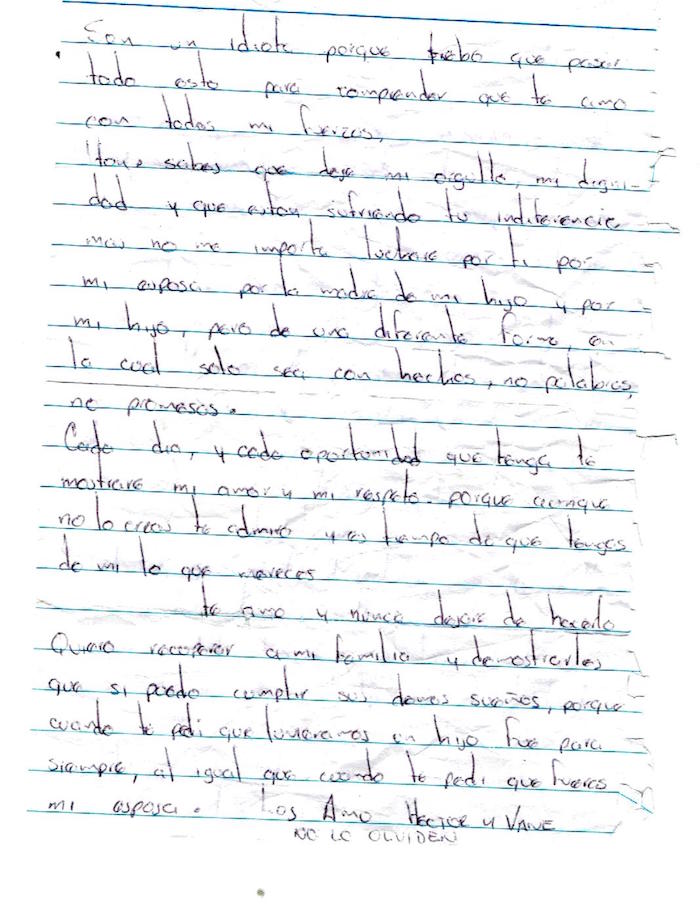 Son un idiota porque tubo que pasar
todo esto para comprender que te amo
con todas mi fuerzas,
sabes que deje mi orgullo, mi digni-
dad y que estoy sufriendo tu indiferencia
mas no me importa luchare por ti por
mi esposa por la madre de mi hijo y por
mi hijo, pero de una diferente forma, en
la cual solo sea con hechos, no palabras,
ne promesas.
Cada dia, y cada oportunidad que tenga te
mostrare mi amor y mi respeto. porque aunque
no lo creas te admiro y es tiempo de que tengas
de mi lo que mereces
te amo y nunca dejare de hacerlo
Quiero recuperar a mi familia y demostrarles
que si puedo cumplir sus demas sueños, porque
cuando te pedi que tuvieramos un hijo fue para
siempre, al igual que cuando te pedi que fueras
mi esposa. Los Amo HECTOR y VANE
NO LO OLVIDEN